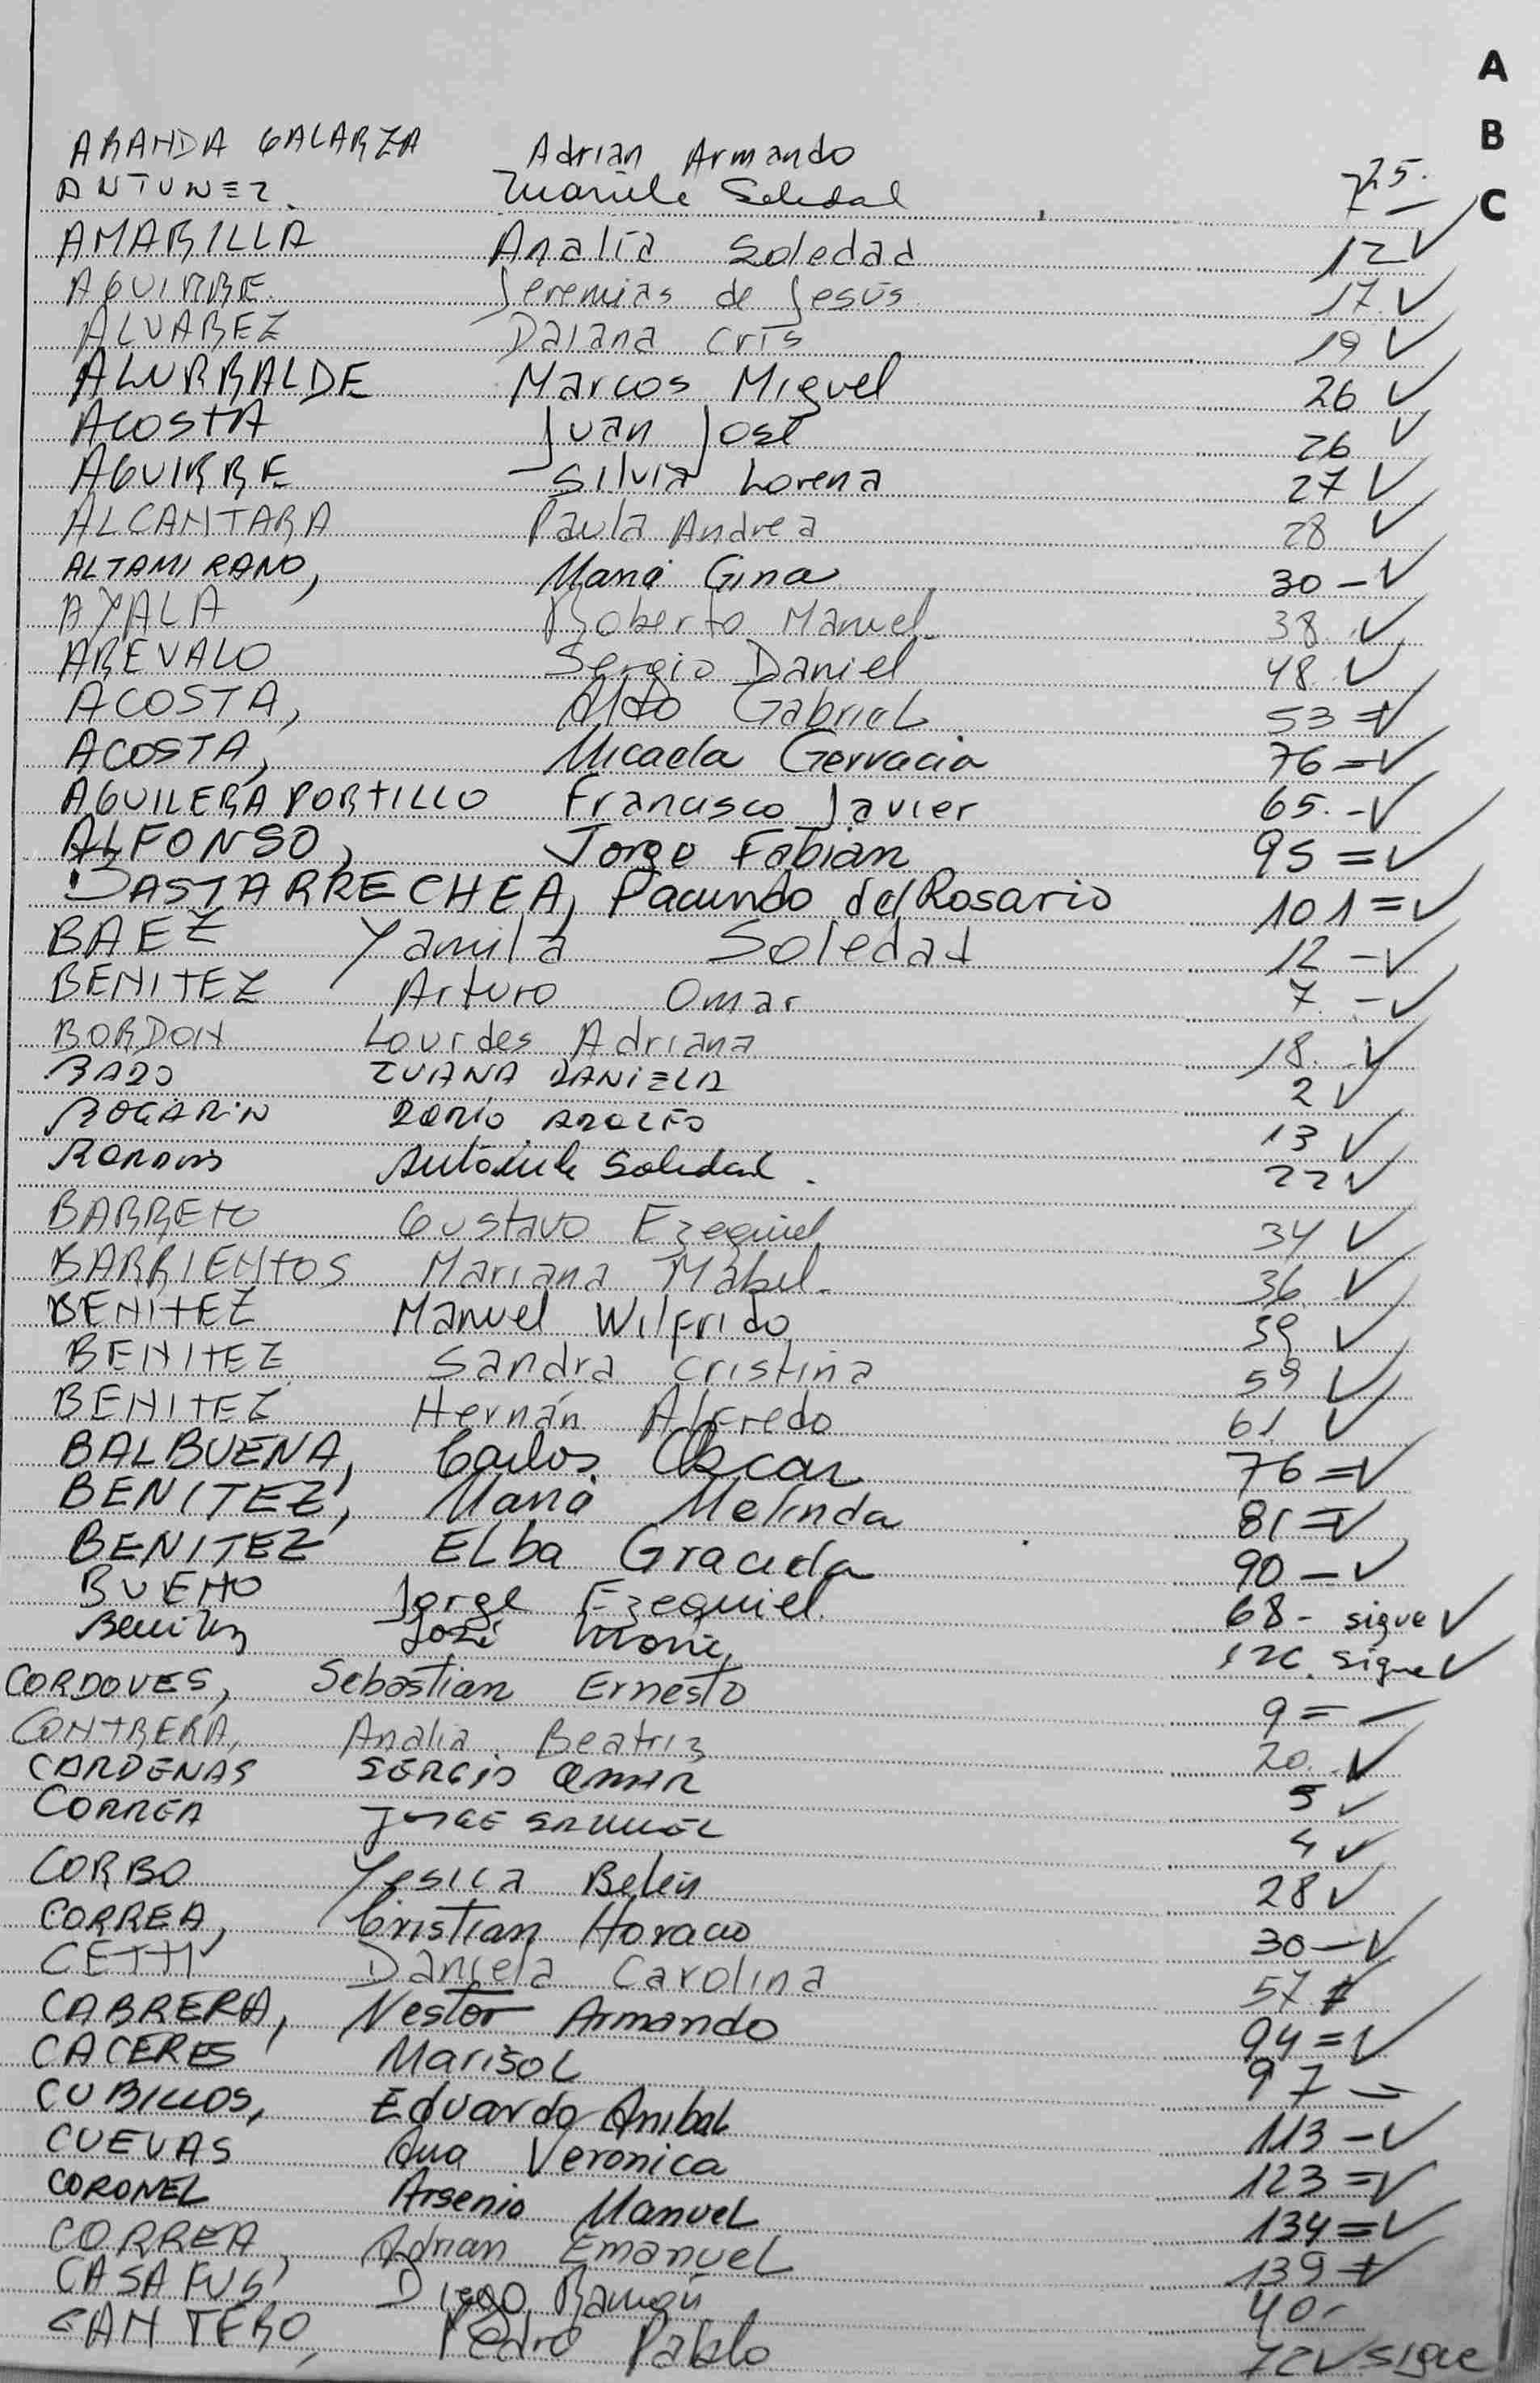 A
B
C
ARANDA GALARZA Adrian Armando 725.
ANTUNEZ. Mariela Soledad 7 —
AMARILLA Analía Soledad 12 ✓
AGUIRRE Jeremias de Jesús 17 ✓
ALVAREZ Daiana Cris 19 ✓
ALURRALDE Marcos Miguel 26 ✓
ACOSTA Juan José 26 ✓
AGUIRRE Silvia Lorena 27 ✓
ALCANTARA Paula Andrea 28 ✓
ALTAMIRANO, María Gina 30 - ✓
AYALA Roberto Manuel 38 ✓
AREVALO Sergio Daniel 48 ✓
ACOSTA, Aldo Gabriel 53 = ✓
ACOSTA, Micaela Gervacia 76 = ✓
AGUILERA PORTILLO Francisco Javier 65. - ✓
ALFONSO, Jorge Fabian 95 = ✓
BASTARRECHEA, Facundo del Rosario 101 = ✓
BAEZ Yamila Soledad 12 - ✓
BENITEZ Arturo Omar 7. - ✓
BORDON Lourdes Adriana 18. - ✓
BAZO IVANA DANIELA 2 ✓
BOGARIN DARIO ADOLFO 13 ✓
Antonela Soledad. 22 ✓
BARRETO Gustavo Ezequiel 34 ✓
BARRIENTOS Mariana Mabel. 36. ✓
BENITEZ Manuel Wilfrido 39 ✓
BENITEZ Sandra Cristina 59 ✓
BENITEZ Hernán Alfredo 61 ✓
BALBUENA, Carlos Oscar 76 = ✓
BENITEZ, María Melinda 81 = ✓
BENITEZ Elba Graciela 90 - ✓
BUENO Jorge Ezequiel. 68 - sigue ✓
Benitez José María 126. sigue ✓
CORDOVES, Sebastian Ernesto 9 = —
CONTRERA, Analia Beatriz 20. ✓
CARDENAS SERGIO OMAR 5 ✓
CORREA JORGE SAMUEL 4 ✓
CORBO Yesica Belén 28 ✓
CORREA, Cristian Horacio 30 - ✓
CETTI Daniela Carolina 57 ✓
CABRERA, Nestor Armando 94 = ✓
CACERES Marisol 97 —
CUBILLOS, Eduardo Anibal 113 - ✓
CUEVAS Ana Veronica 123 = ✓
CORONEL Arsenio Manuel 134 = ✓
CORREA, Adrian Emanuel 139 ✓
CASAFUS Diego Ramón 40 -
CANTERO, Pedro Pablo 72 ✓ sigue